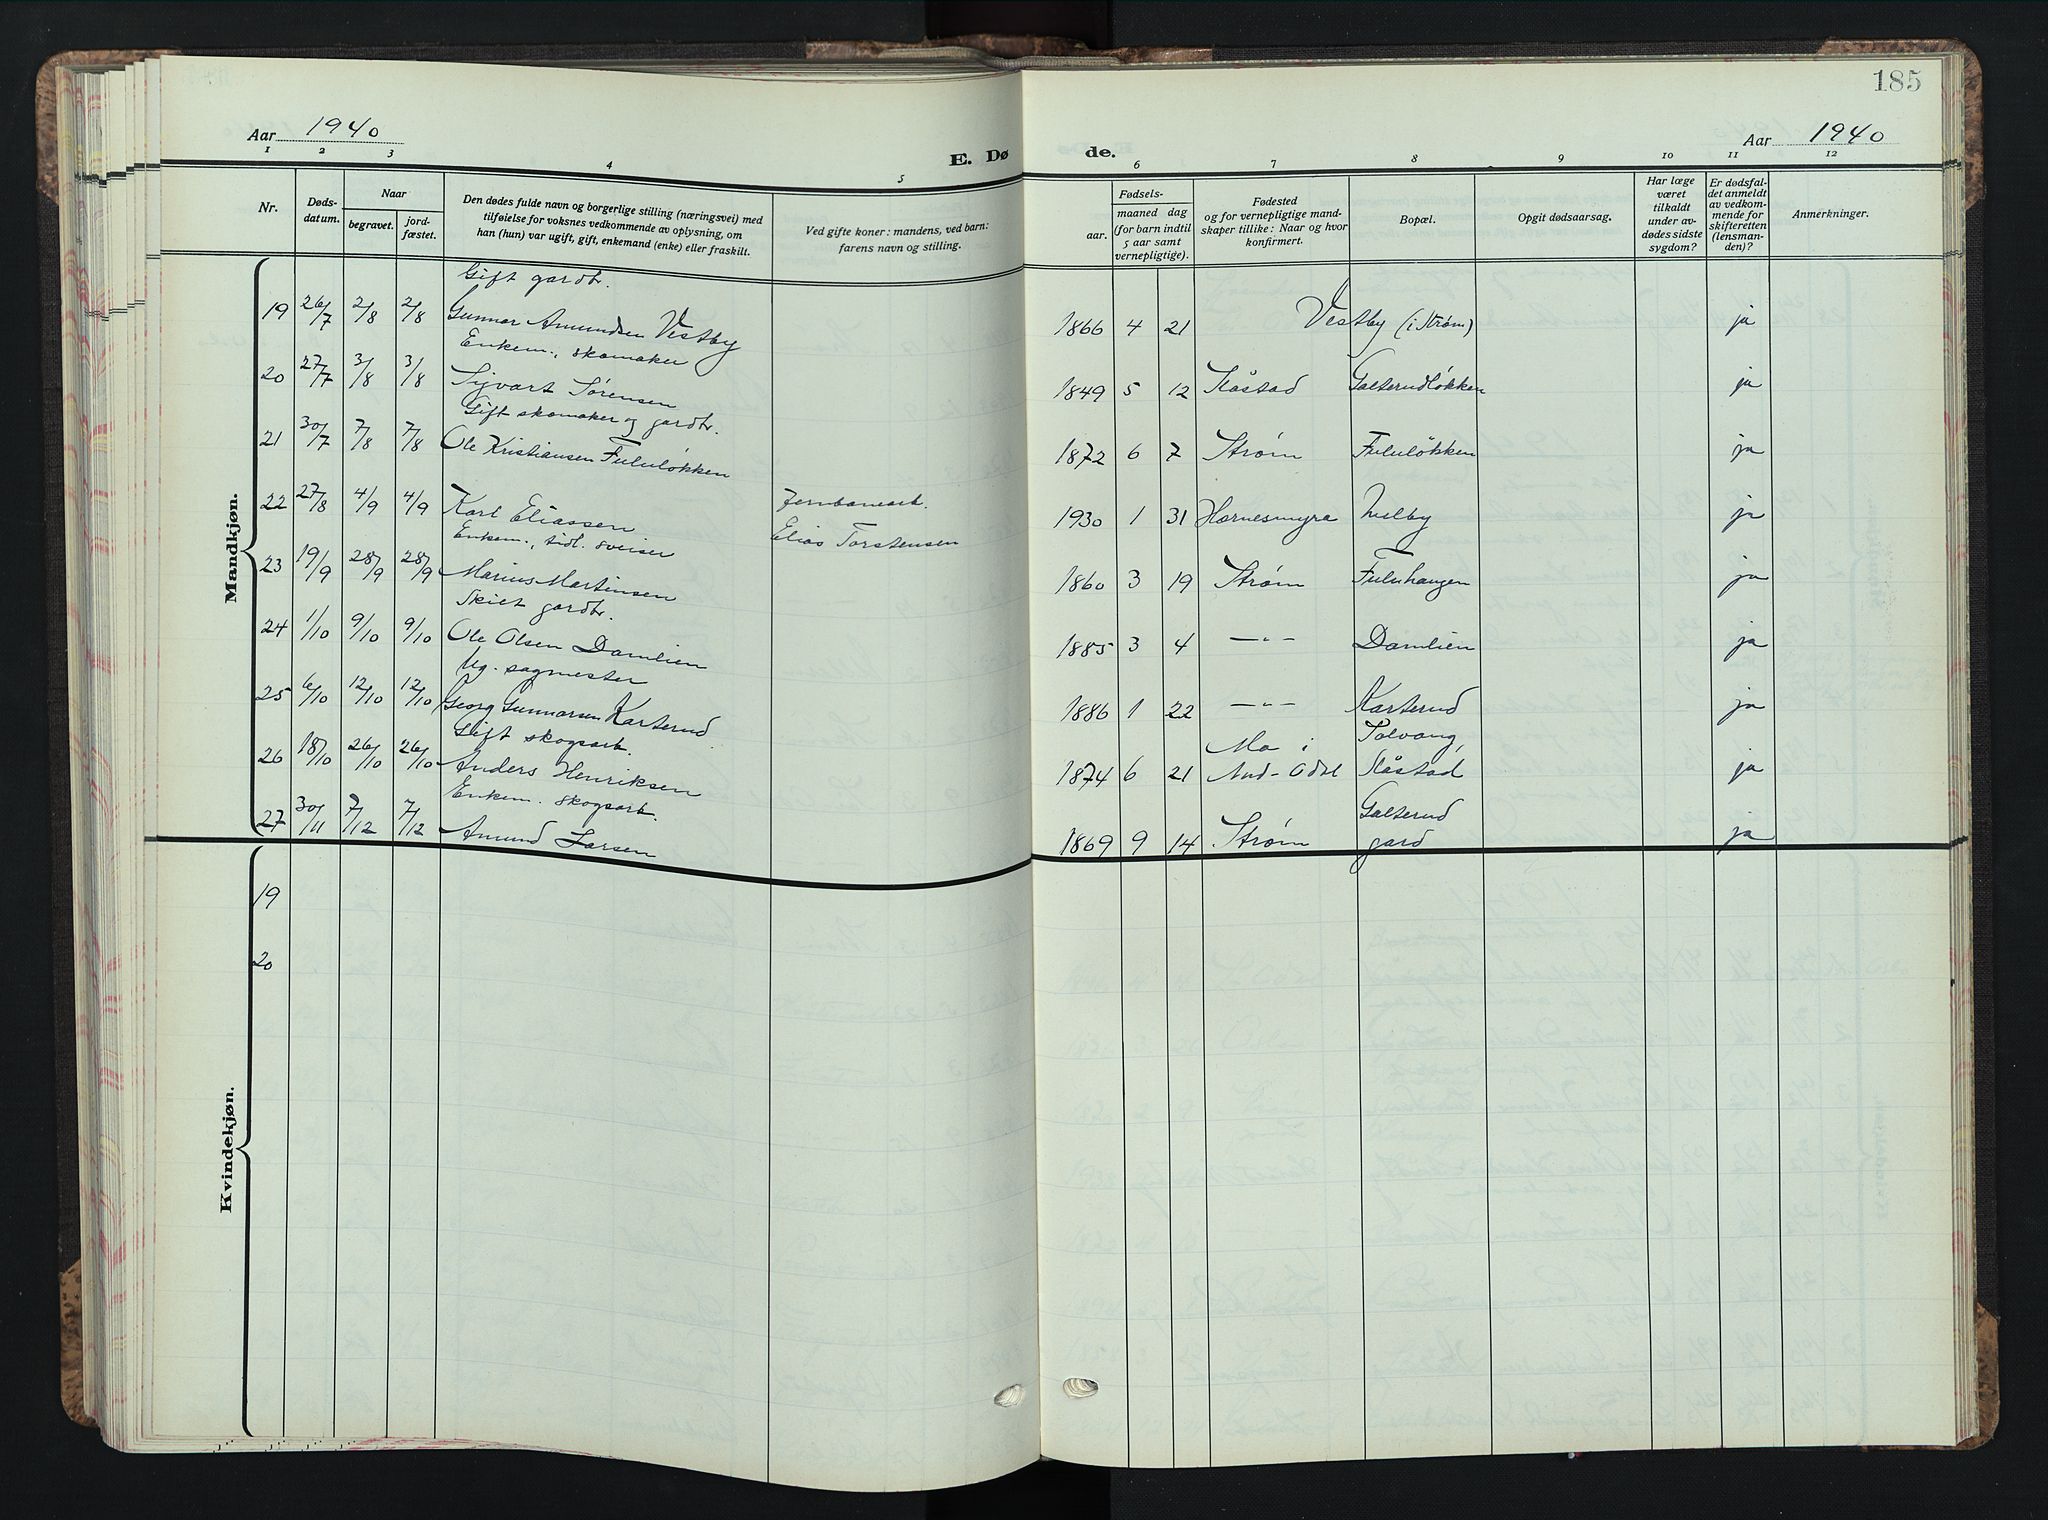 185
Aar 1940
E. Døde.
Aar 1940
1 2 3 4 5 6 7 8 9 10 11 12
Nr.
Døds-
datum.
Naar
begravet.
jord-
fæstet.
Den dødes fulde navn og borgerlige stilling (næringsvei) med
tilføielse for voksnes vedkommende av oplysning, om
han (hun) var ugift, gift, enkemand (enke) eller fraskilt.
Ved gifte koner: mandens, ved barn:
farens navn og stilling.
Fødsels-
aar.
maaned dag
(for barn indtil
5 aar samt
vernepligtige).
Fødested
og for vernepligtige mand-
skaper tillike: Naar og hvor
konfirmert.
Bopæl.
Opgit dødsaarsag.
Har læge
været
tilkaldt
under av-
dødes sidste
sygdom?
Er dødsfal-
det anmeldt
av vedkom-
mende for
skifteretten
(lensman-
den)?
Anmerkninger.
Mandkjøn.
Gift gardbr.
19 26/7 2/8 2/8 Gunnar Amundsen Vestby 1866 4 21 Vestby (i Strøm) ja
Enkem., skomaker
20 27/7 3/8 3/8 Sigvart Sørensen 1849 5 12 Kåstad Galterudløkken ja
Gift skomaker og gardbr.
21 30/7 7/8 7/8 Ole Kristiansen Fululøkken 1872 6 7 Strøm Fululøkken ja
22 27/8 4/9 4/9 Karl Eliassen Jernbanearb. Elias Torstensen 1930 1 31 Hornesmyra Melby ja
Enkem., tidl. sveiser
23 19/9 28/9 28/9 Marius Martinsen 1860 3 19 Strøm Fuluhaugen ja
Skilt gardbr.
24 1/10 9/10 9/10 Ole Olsen Damlien 1885 3 4 —"— Damlien ja
Ug. sagmester
25 6/10 12/10 12/10 Georg Gunnarsen Karterud 1886 1 22 —"— Karterud ja
Gift skogsarb.
26 18/10 26/10 26/10 Anders Henriksen 1874 6 21 Mo i Nord-Odal Solvang, Kåstad ja
Enkem. skogsarb.
27 30/11 7/12 7/12 Amund Larsen 1869 9 14 Strøm Galterud gard ja
Kvindekjøn.
19
20